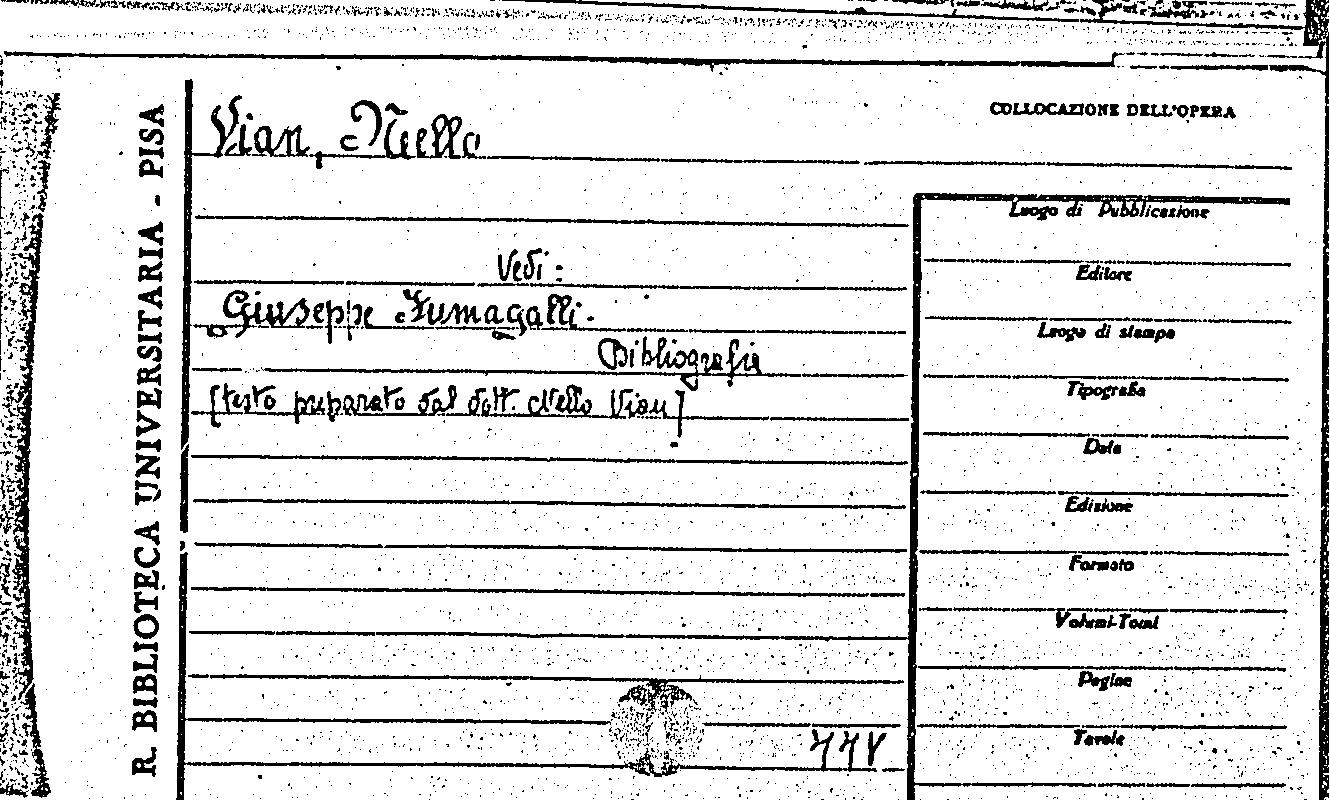 R. BIBLIOTECA UNIVERSITARIA - PISA
COLLOCAZIONE DELL'OPERA
Vian, Nello
Vedi:
Giuseppe Fumagalli.
Bibliografia
[testo preparato dal dott. Nello Vian]
Luogo di Pubblicazione
Editore
Luogo di stampa
Tipografia
Data
Edizione
Formato
Volumi-Tomi
Pagine
Tavole